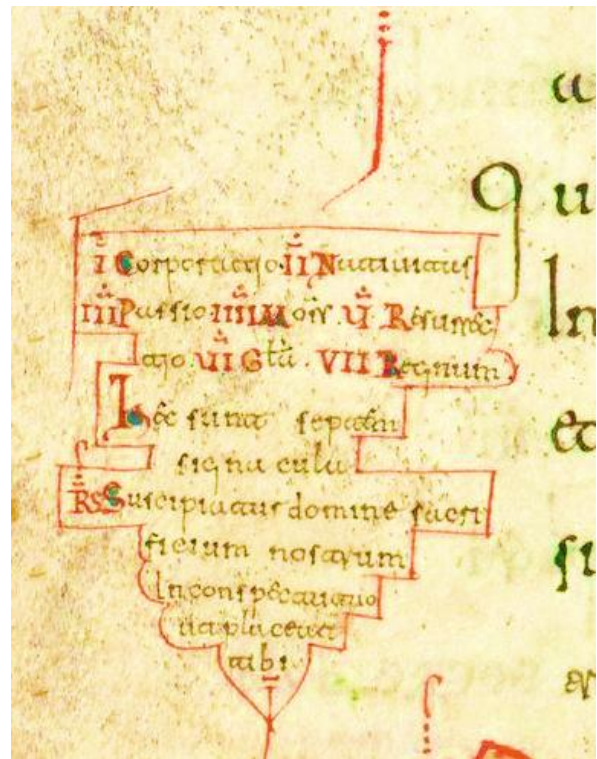 I Corporatio II Natiuitas
III Passio IIII Mors V Resurrec
tio VI Gla VII Regnum
Hec sunt septem
signacula
RS Suscipiatur domine sacri
ficium nostrum
In conspectu tuo
ut placeat
tibi
Qu
In
et
si